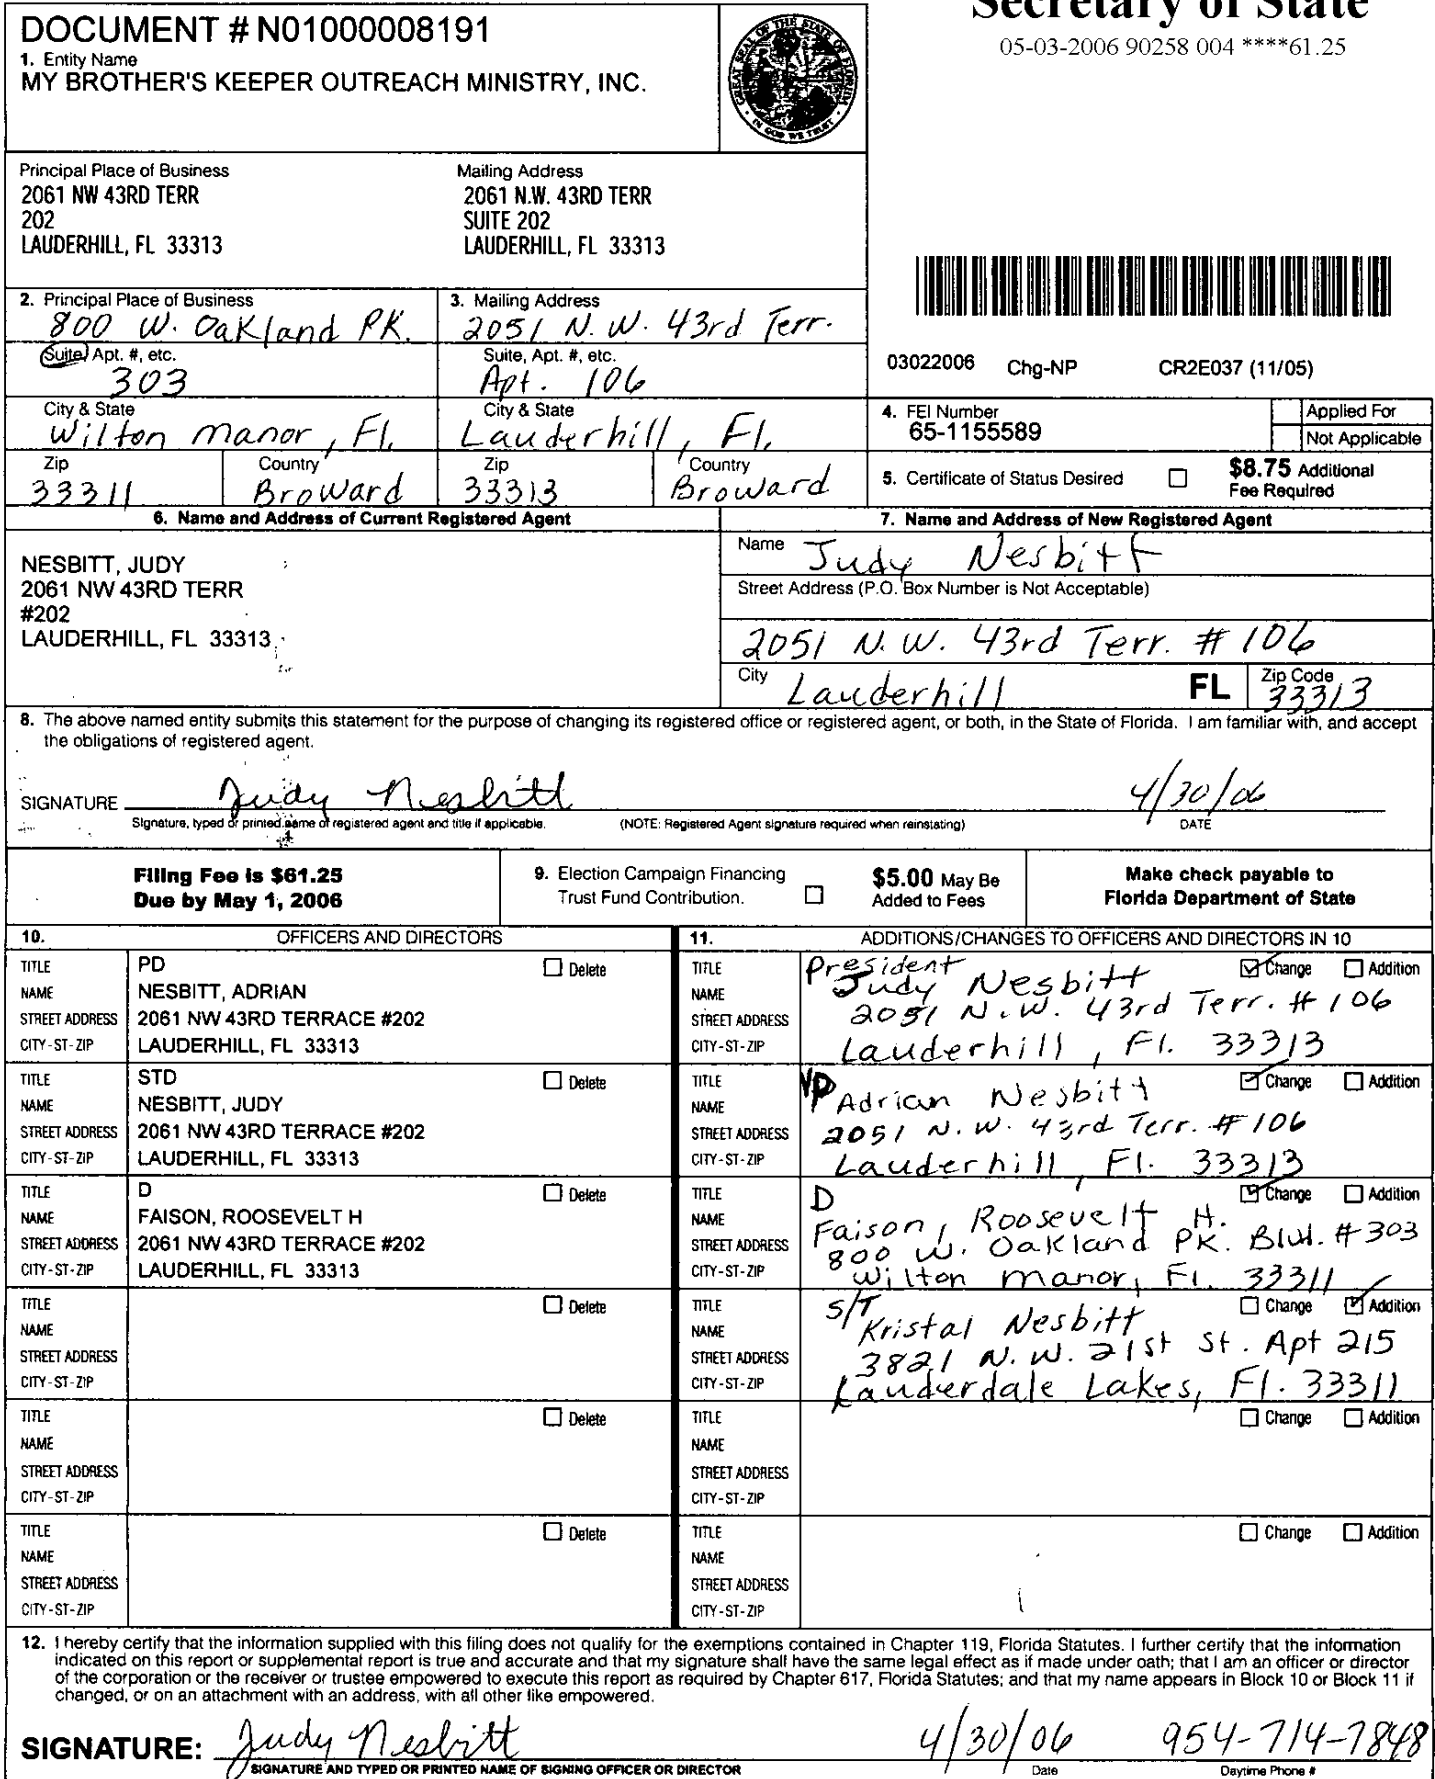 Secretary of State
05-03-2006 90258 004 ****61.25
DOCUMENT # N01000008191
1. Entity Name
MY BROTHER'S KEEPER OUTREACH MINISTRY, INC.
GREAT SEAL OF THE STATE OF FLORIDA
IN GOD WE TRUST
Principal Place of Business
2061 NW 43RD TERR
202
LAUDERHILL, FL 33313
Mailing Address
2061 N.W. 43RD TERR
SUITE 202
LAUDERHILL, FL 33313
2. Principal Place of Business
800 W. Oakland PK.
Suite, Apt. #, etc.
303
City & State
Wilton Manor, Fl.
Zip
33311
Country
Broward
3. Mailing Address
2051 N.W. 43rd Terr.
Suite, Apt. #, etc.
Apt. 106
City & State
Lauderhill, Fl.
Zip
33313
Country
Broward
03022006 Chg-NP CR2E037 (11/05)
4. FEI Number
65-1155589
Applied For
Not Applicable
5. Certificate of Status Desired
$8.75 Additional
Fee Required
6. Name and Address of Current Registered Agent
NESBITT, JUDY
2061 NW 43RD TERR
#202
LAUDERHILL, FL 33313
7. Name and Address of New Registered Agent
Name Judy Nesbitt
Street Address (P.O. Box Number is Not Acceptable)
2051 N.W. 43rd Terr. # 106
City Lauderhill FL Zip Code 33313
8. The above named entity submits this statement for the purpose of changing its registered office or registered agent, or both, in the State of Florida. I am familiar with, and accept
the obligations of registered agent.
SIGNATURE Judy Nesbitt 4/30/06
Signature, typed or printed name of registered agent and title if applicable. (NOTE: Registered Agent signature required when reinstating) DATE
Filing Fee is $61.25
Due by May 1, 2006
9. Election Campaign Financing
Trust Fund Contribution.
$5.00 May Be
Added to Fees
Make check payable to
Florida Department of State
10. OFFICERS AND DIRECTORS
TITLE PD Delete
NAME NESBITT, ADRIAN
STREET ADDRESS 2061 NW 43RD TERRACE #202
CITY-ST-ZIP LAUDERHILL, FL 33313
TITLE STD Delete
NAME NESBITT, JUDY
STREET ADDRESS 2061 NW 43RD TERRACE #202
CITY-ST-ZIP LAUDERHILL, FL 33313
TITLE D Delete
NAME FAISON, ROOSEVELT H
STREET ADDRESS 2061 NW 43RD TERRACE #202
CITY-ST-ZIP LAUDERHILL, FL 33313
TITLE Delete
NAME
STREET ADDRESS
CITY-ST-ZIP
TITLE Delete
NAME
STREET ADDRESS
CITY-ST-ZIP
TITLE Delete
NAME
STREET ADDRESS
CITY-ST-ZIP
11. ADDITIONS/CHANGES TO OFFICERS AND DIRECTORS IN 10
TITLE President Change Addition
NAME Judy Nesbitt
STREET ADDRESS 2051 N.W. 43rd Terr. # 106
CITY-ST-ZIP Lauderhill, Fl. 33313
TITLE VP Change Addition
NAME Adrian Nesbitt
STREET ADDRESS 2051 N.W. 43rd Terr. # 106
CITY-ST-ZIP Lauderhill, Fl. 33313
TITLE D Change Addition
NAME Faison, Roosevelt H.
STREET ADDRESS 800 W. Oakland PK. Blvd. # 303
CITY-ST-ZIP Wilton Manor, Fl. 33311
TITLE S/T Change Addition
NAME Kristal Nesbitt
STREET ADDRESS 3821 N.W. 21st St. Apt 215
CITY-ST-ZIP Lauderdale Lakes, Fl. 33311
TITLE Change Addition
NAME
STREET ADDRESS
CITY-ST-ZIP
TITLE Change Addition
NAME
STREET ADDRESS
CITY-ST-ZIP
12. I hereby certify that the information supplied with this filing does not qualify for the exemptions contained in Chapter 119, Florida Statutes. I further certify that the information
indicated on this report or supplemental report is true and accurate and that my signature shall have the same legal effect as if made under oath; that I am an officer or director
of the corporation or the receiver or trustee empowered to execute this report as required by Chapter 617, Florida Statutes; and that my name appears in Block 10 or Block 11 if
changed, or on an attachment with an address, with all other like empowered.
SIGNATURE: Judy Nesbitt 4/30/06 954-714-7848
SIGNATURE AND TYPED OR PRINTED NAME OF SIGNING OFFICER OR DIRECTOR Date Daytime Phone #